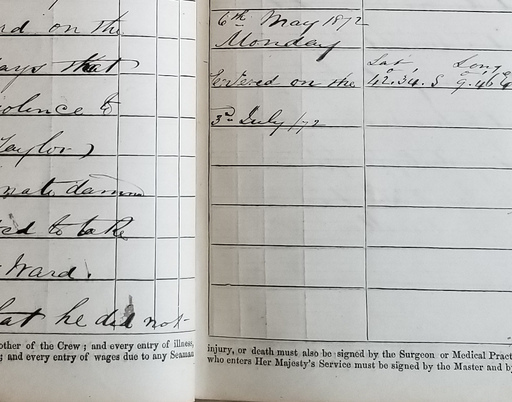 rd on the
ays that
iolence to
Taylor)
ced to take
Ward.
hat he did not
other of the Crew; and every entry of illness,
; and every entry of wages due to any Seaman
6th May 1872
Monday
Entered on the
3rd July /72
Lat Long
42.34. S 9.46 E
injury, or death must also be signed by the Surgeon or Medical Pract
who enters Her Majesty's Service must be signed by the Master and by